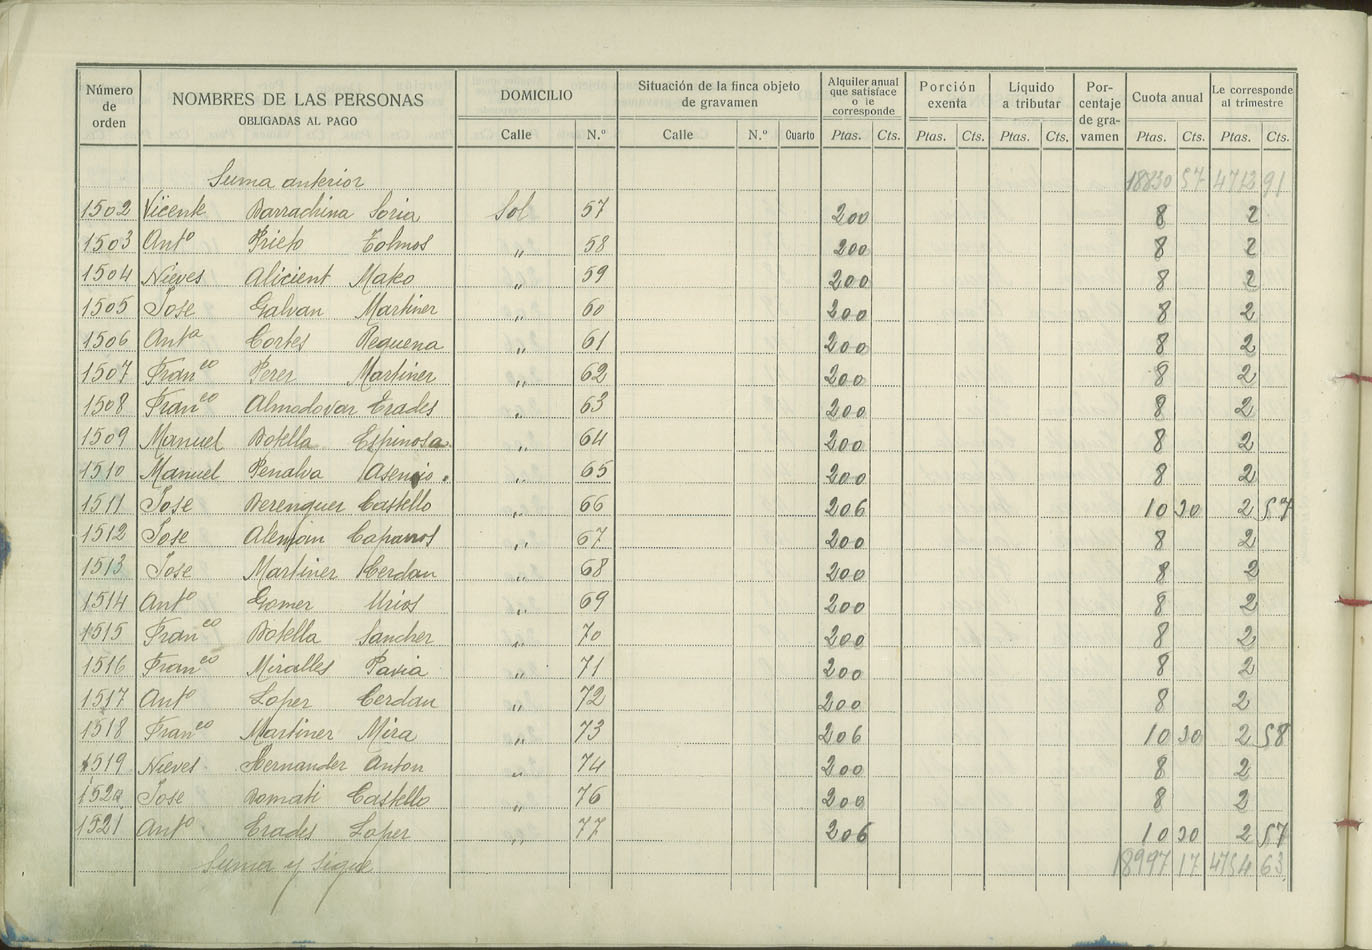 Número de orden | NOMBRES DE LAS PERSONAS OBLIGADAS AL PAGO | DOMICILIO | Situación de la finca objeto de gravamen | Alquiler anual que satisface o le corresponde | Porción exenta | Líquido a tributar | Por-centaje de gra-vamen | Cuota anual | Le corresponde al trimestre
Calle | N.º | Calle | N.º | Cuarto | Ptas. | Cts. | Ptas. | Cts. | Ptas. | Cts. | Ptas. | Cts. | Ptas. | Cts.
Suma anterior 18830 57 4713 91
1502 Vicente Barrachina Soria Sol 57 200 8 2
1503 Antº Prieto Tolmos „ 58 200 8 2
1504 Nieves Alicient Mako „ 59 200 8 2
1505 Jose Galvan Martiner „ 60 200 8 2
1506 Antª Cortes Requena „ 61 200 8 2
1507 Franco Perer Martiner „ 62 200 8 2
1508 Franco Almodovar Erades „ 63 200 8 2
1509 Manuel Botella Espinosa „ 64 200 8 2
1510 Manuel Penalva Asencio „ 65 200 8 2
1511 Jose Berenguer Castello „ 66 206 10 30 2 57
1512 Jose Aleman Caparros „ 67 200 8 2
1513 Jose Martiner Cerdan „ 68 200 8 2
1514 Antº Gomer Urios „ 69 200 8 2
1515 Franco Botella Sancher „ 70 200 8 2
1516 Franco Miralles Pavia „ 71 200 8 2
1517 Antº Loper Cerdan „ 72 200 8 2
1518 Franco Martiner Mira „ 73 206 10 30 2 58
1519 Nieves Hernander Anton „ 74 200 8 2
1520 Jose Bomati Castello „ 76 200 8 2
1521 Antº Erades Loper „ 77 206 10 30 2 57
Suma y sigue 18997 17 4754 63